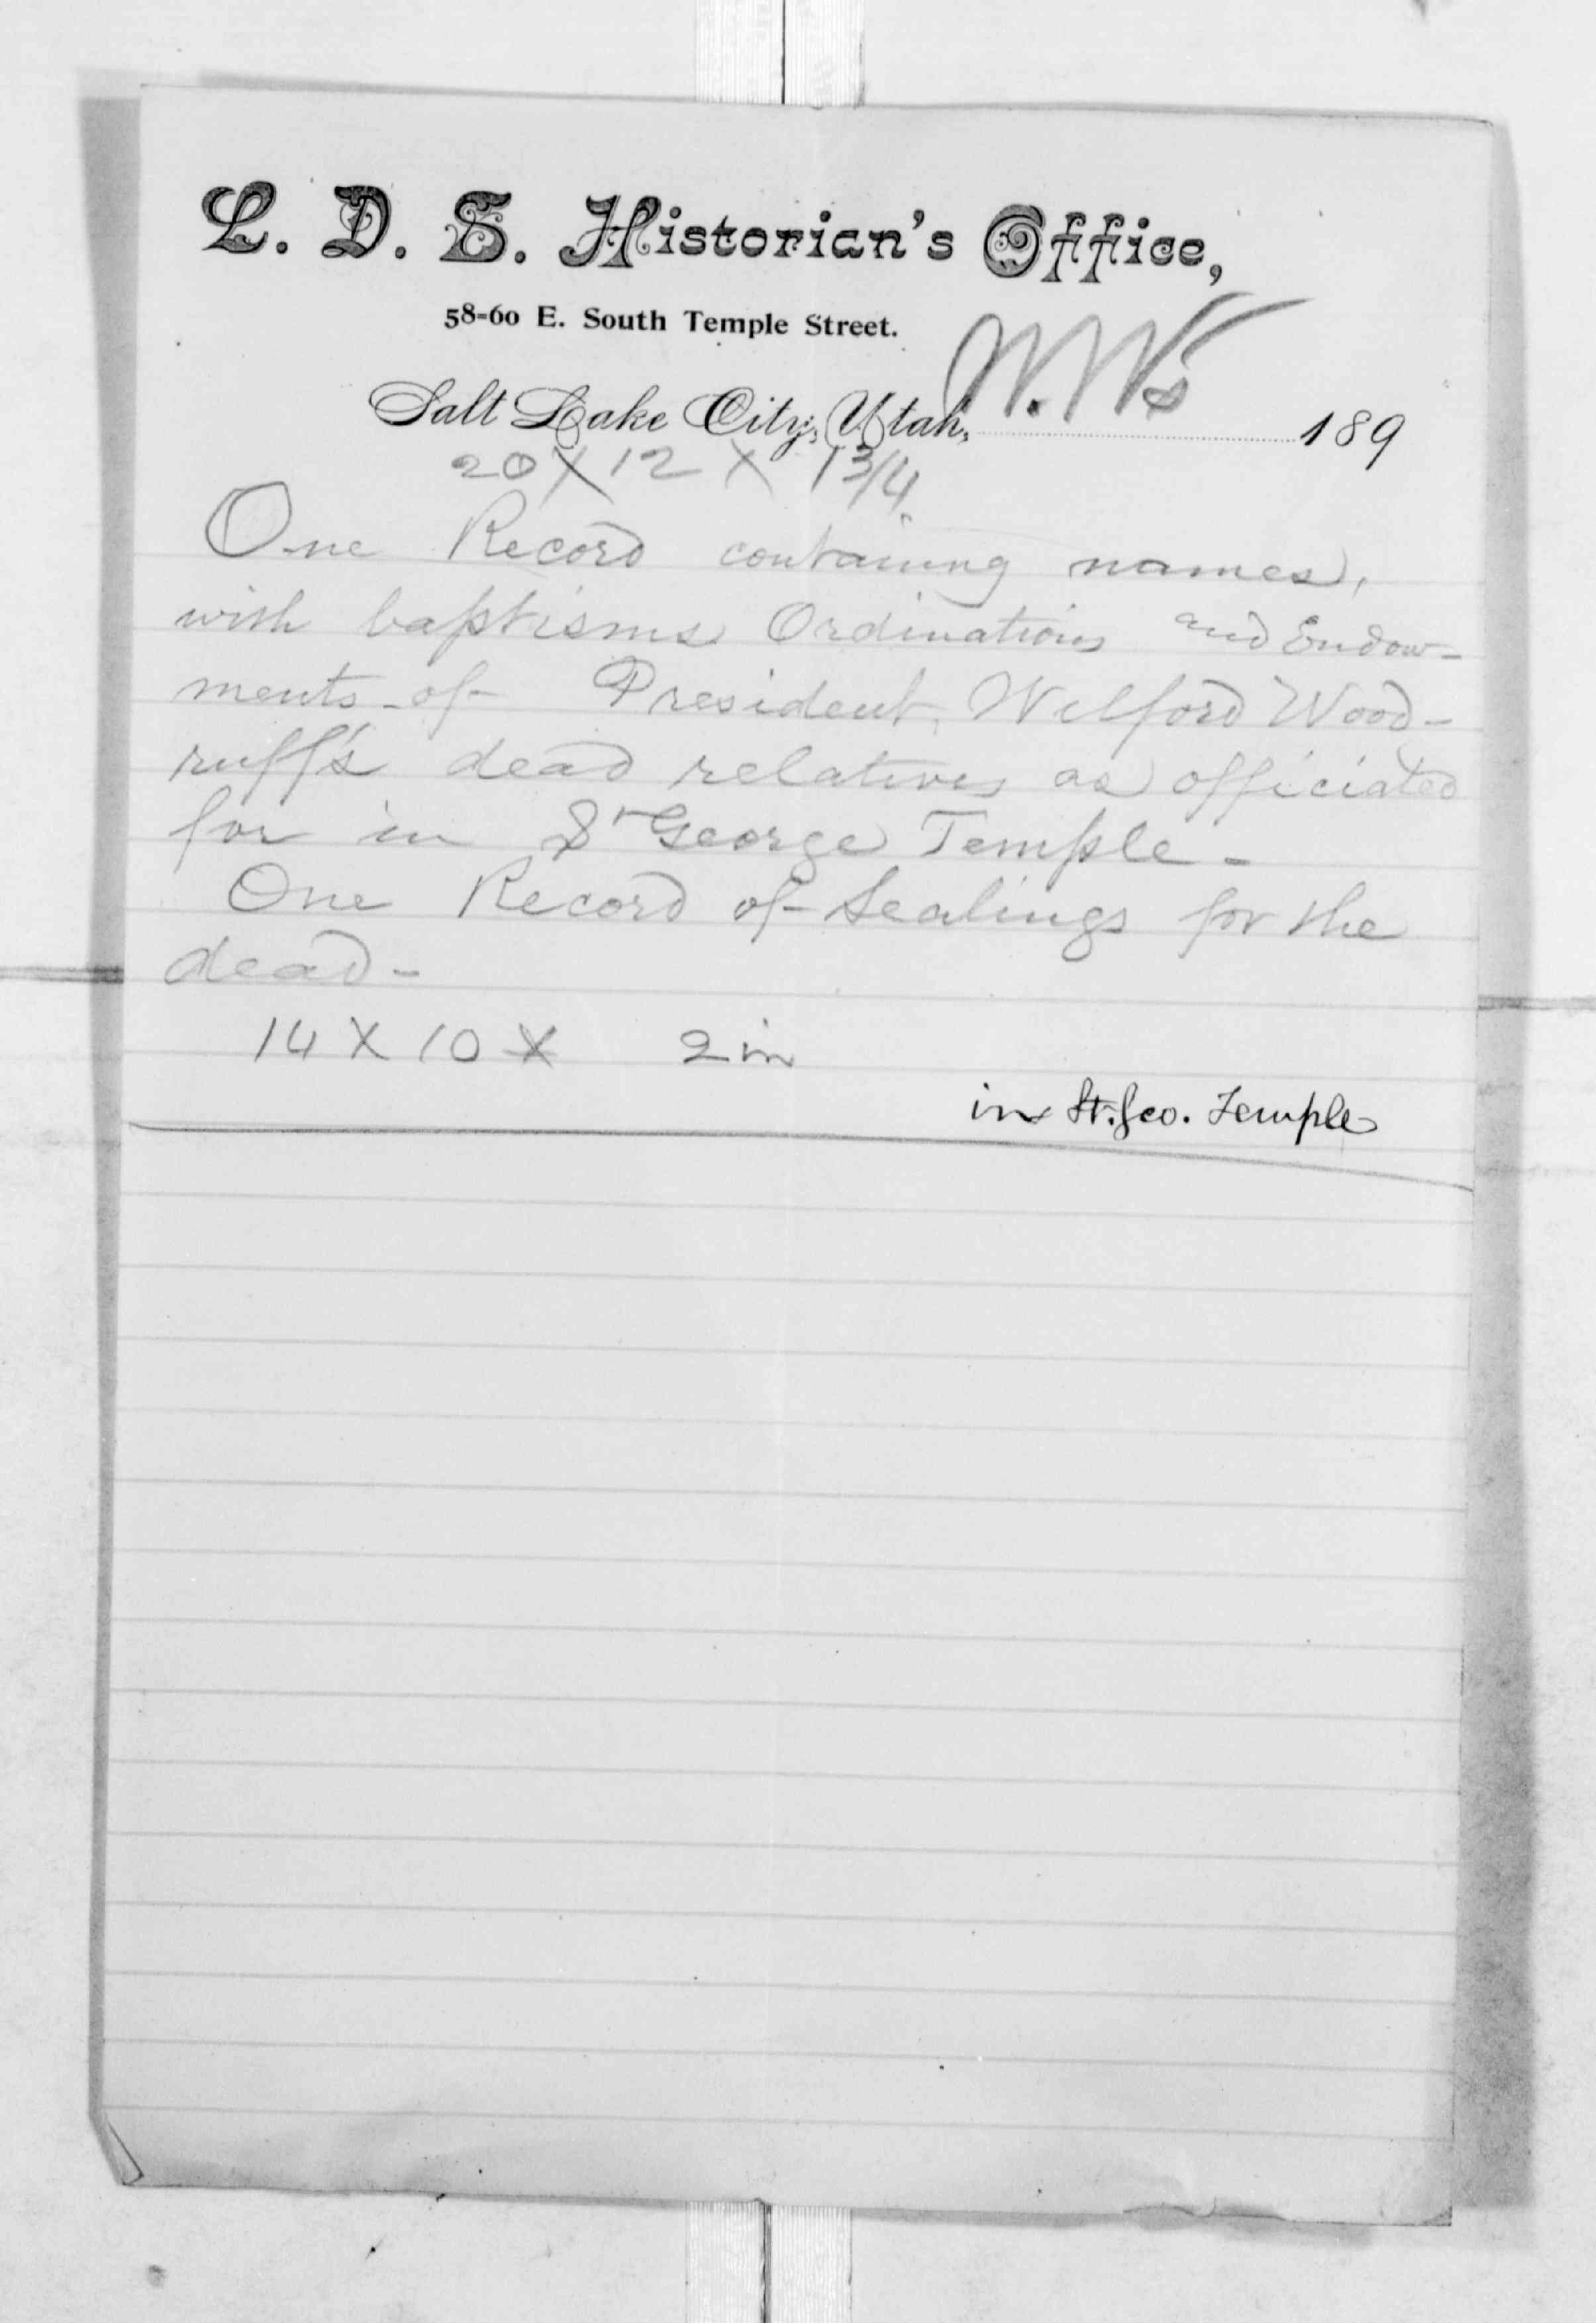 L. D. S. Historian's Office,
58-60 E. South Temple Street.
W. W's
Salt Lake City, Utah, 189
20 X 12 X 1 3/4
One Record containing names,
with baptisms Ordinations and Endow-
ments of President Wilford Wood-
ruff's dead relatives as officiated
for in St George Temple -
One Record of Sealings for the
dead -
14 X 10 X 2 in
in St. Geo. Temple